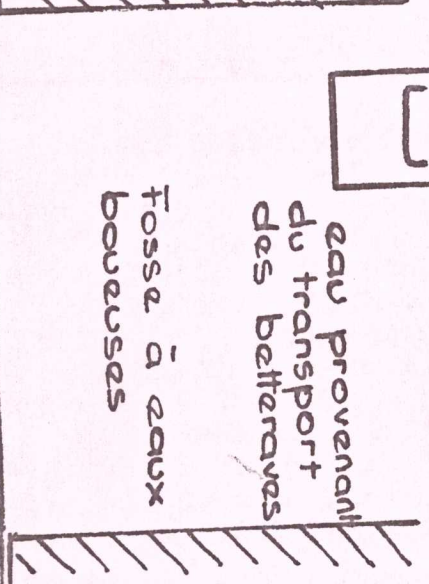 eau provenant
du transport
des betteraves
Fosse à eaux
boueuses